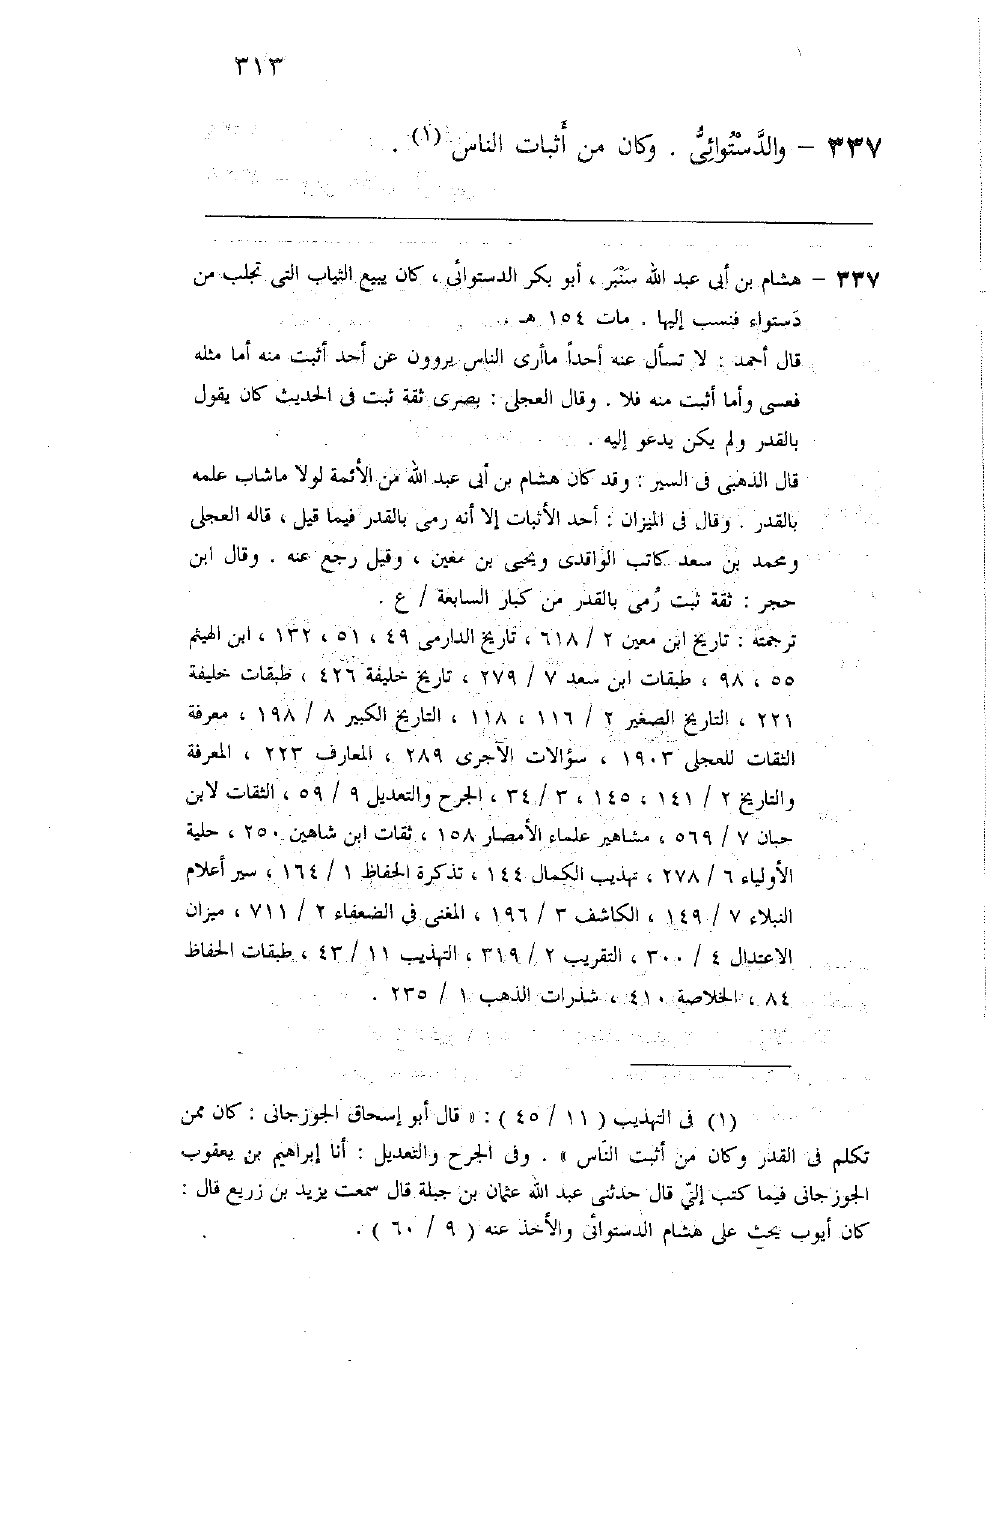 ٣١٣
٣٣٧ – والدَّسْتُوائِىُّ . وكان من أَثبات الناس (١) .
٣٣٧ – هشام بن أبى عبد الله سَنْبَر ، أبو بكر الدستوائى ، كان يبيع الثياب التى تجلب من
دَستواء فنسب إليها . مات ١٥٤ هـ .
قال أحمد : لا تسأل عنه أحداً ماأرى الناس يروون عن أحد أثبت منه أما مثله
فعسى وأما أثبت منه فلا . وقال العجلى : بصرى ثقة ثبت فى الحديث كان يقول
بالقدر ولم يكن يدعو إليه .
قال الذهبى فى السير : وقد كان هشام بن أبى عبد الله من الأئمة لولا ماشاب علمه
بالقدر . وقال فى الميزان : أحد الأثبات إلا أنه رمى بالقدر فيما قيل ، قاله العجلى
ومحمد بن سعد كاتب الواقدى ويحيى بن معين ، وقيل رجع عنه . وقال ابن
حجر : ثقة ثبت رُمى بالقدر من كبار السابعة / ع .
ترجمته : تاريخ ابن معين ٢ / ٦١٨ ، تاريخ الدارمى ٤٩ ، ٥١ ، ١٣٢ ، ابن الهيثم
٥٥ ، ٩٨ ، طبقات ابن سعد ٧ / ٢٧٩ ، تاريخ خليفة ٤٢٦ ، طبقات خليفة
٢٢١ ، التاريخ الصغير ٢ / ١١٦ ، ١١٨ ، التاريخ الكبير ٨ / ١٩٨ ، معرفة
الثقات للعجلى ١٩٠٣ ، سؤالات الآجرى ٢٨٩ ، المعارف ٢٢٣ ، المعرفة
والتاريخ ٢ / ١٤١ ، ١٤٥ ، ٣ / ٣٤ ، الجرح والتعديل ٩ / ٥٩ ، الثقات لابن
حبان ٧ / ٥٦٩ ، مشاهير علماء الأمصار ١٥٨ ، ثقات ابن شاهين ٢٥٠ ، حلية
الأولياء ٦ / ٢٧٨ ، تهذيب الكمال ١٤٤ ، تذكرة الحفاظ ١ / ١٦٤ ، سير أعلام
النبلاء ٧ / ١٤٩ ، الكاشف ٣ / ١٩٦ ، المغنى فى الضعفاء ٢ / ٧١١ ، ميزان
الاعتدال ٤ / ٣٠٠ ، التقريب ٢ / ٣١٩ ، التهذيب ١١ / ٤٣ ، طبقات الحفاظ
٨٤ ، الخلاصة ٤١٠ ، شذرات الذهب ١ / ٢٣٥ .
(١) فى التهذيب ( ١١ / ٤٥ ) : « قال أبو إسحاق الجوزجانى : كان ممن
تكلم فى القدر وكان من أثبت النّاس » . وفى الجرح والتعديل : أنا إبراهيم بن يعقوب
الجوزجانى فيما كتب إليّ قال حدثنى عبد الله عثمان بن جبلة قال سمعت يزيد بن زريع قال :
كان أيوب يحث على هشام الدستوائى والأخذ عنه ( ٩ / ٦٠ ) .